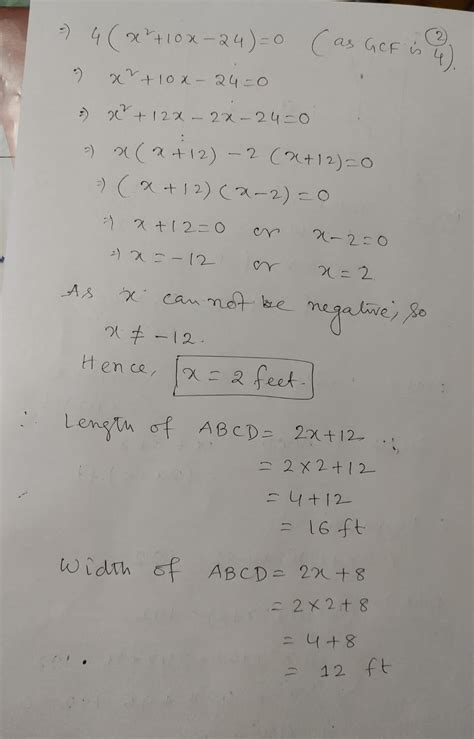 ②
⇒ 4(x²+10x-24)=0 (as GCF is 4).
⇒ x²+10x-24=0
⇒ x²+12x-2x-24=0
⇒ x(x+12)-2(x+12)=0
⇒ (x+12)(x-2)=0
⇒ x+12=0 or x-2=0
⇒ x=-12 or x=2
As x can not be negative, so
x≠-12.
Hence, x=2 feet.
∴ Length of ABCD= 2x+12
= 2×2+12
= 4+12
= 16 ft
Width of ABCD= 2x+8
= 2×2+8
= 4+8
= 12 ft